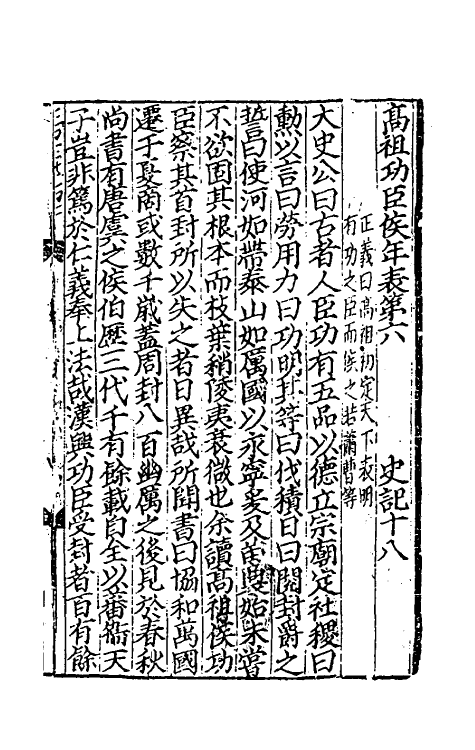 髙祖功臣侯年表第六　史記十八
正義曰髙祖初定天下表明
有功之臣而侯之若蕭曹等
大史公曰古者人臣功有五品以德立宗廟定社稷曰
勲以言曰勞用力曰功明其等曰伐積日曰閱封爵之
誓曰使河如帶泰山如厲國以永寧爰及苗裔始未嘗
不欲固其根本而枝葉稍陵夷衰微也余讀髙祖侯功
臣察其首封所以失之者曰異哉所聞書曰協和萬國
遷于夏商或數千嵗蓋周封八百幽厲之後見於春秋
尚書有唐虞之侯伯歷三代千有餘載自全以蕃衛天
子豈非篤於仁義奉上法哉漢興功臣受封者百有餘